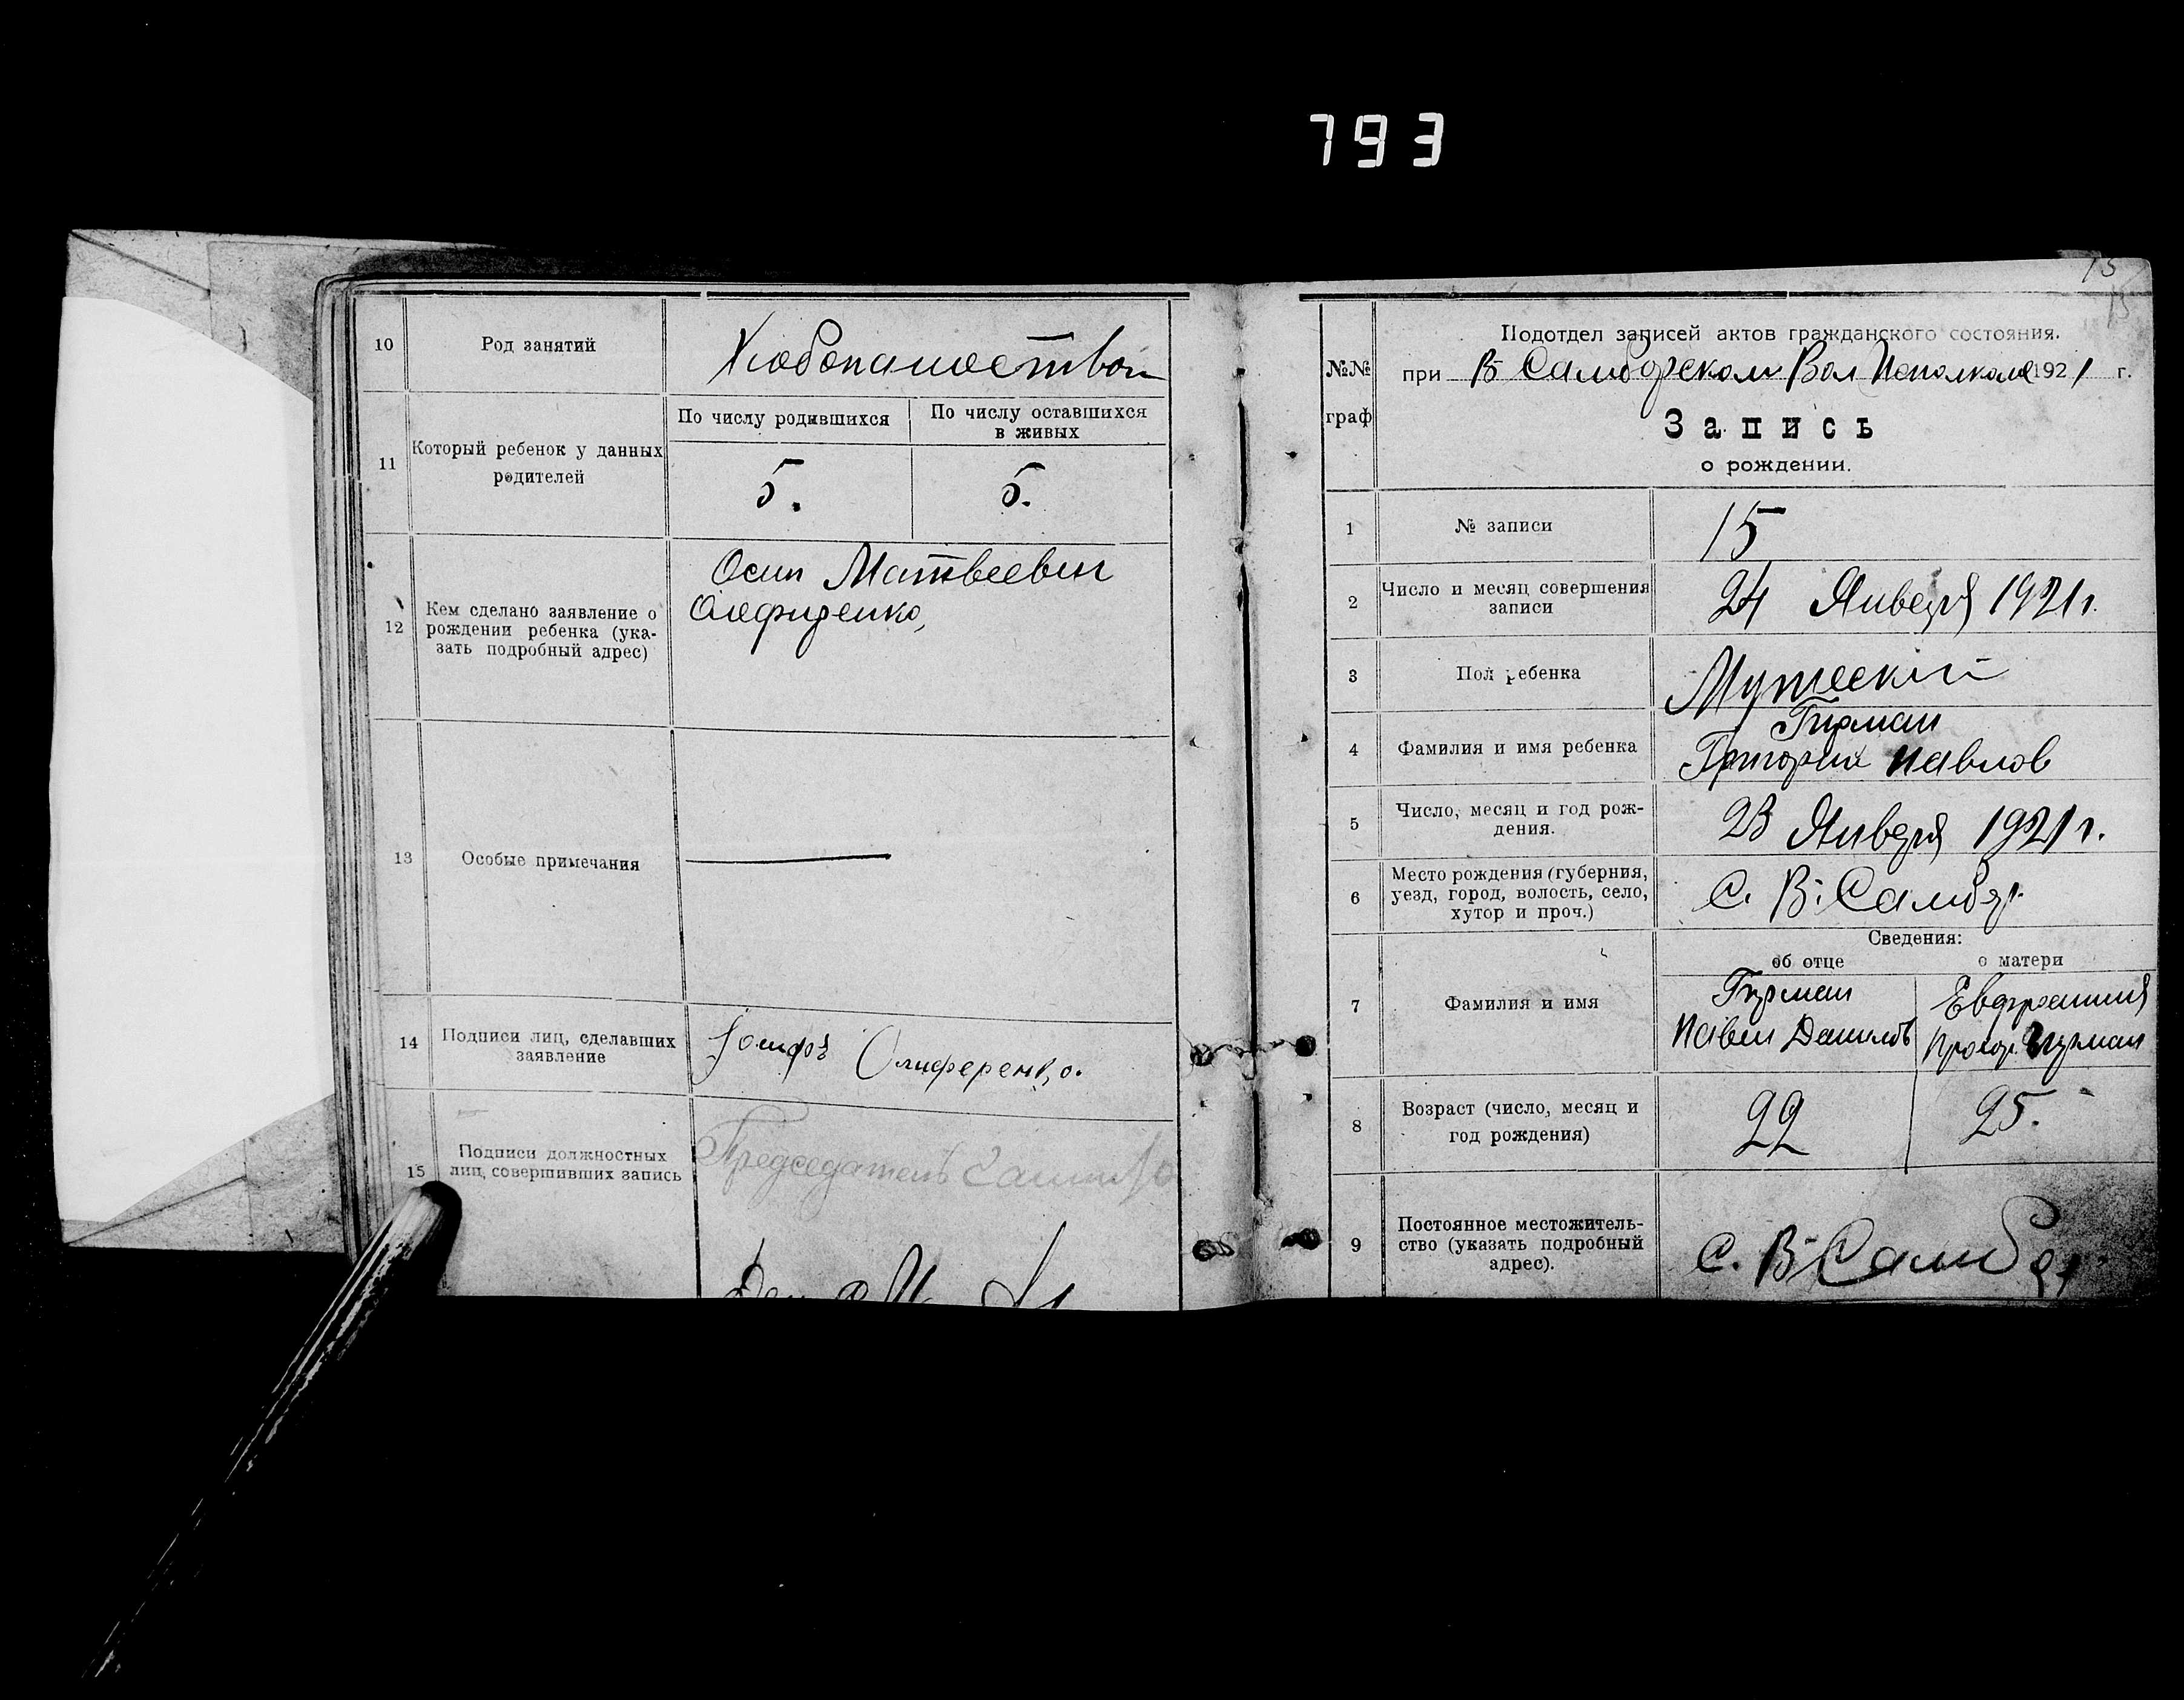 793
10
Род занятий
Хлебопашеством
11
Который ребенок у данных
родителей
По числу родившихся
По числу оставшихся
в живых
5.
5.
12
Кем сделано заявление о
рождении ребенка (ука-
зать подробный адрес)
Осип Матвеевич
13
Особые примечания
14
Подписи лиц, сделавших
заявление
Иосифъ Олиференко.
15
Подписи должностных
лиц, совершивших запись
Председатель
15
15
№№
граф
Подотдел записей актов гражданского состояния.
при В Самборском Вол Исполкоме 1921 г.
Запись
о рождении.
1
№ записи
15
2
Число и месяц совершения
записи
24 Января 1921 г.
3
Пол ребенка
Мужеский
4
Фамилия и имя ребенка
Гирман
Григорий Павлов
5
Число, месяц и год рож-
дения.
23 Января 1921 г.
6
Место рождения (губерния,
уезд, город, волость, село,
хутор и проч.)
С. В. Самбор
Сведения:
об отце
о матери
7
Фамилия и имя
Гирман
Павел Данилов
Евфросиния
Прокор. Гирман
8
Возраст (число, месяц и
год рождения)
22
25.
9
Постоянное местожитель-
ство (указать подробный
адрес).
С. В Самбор